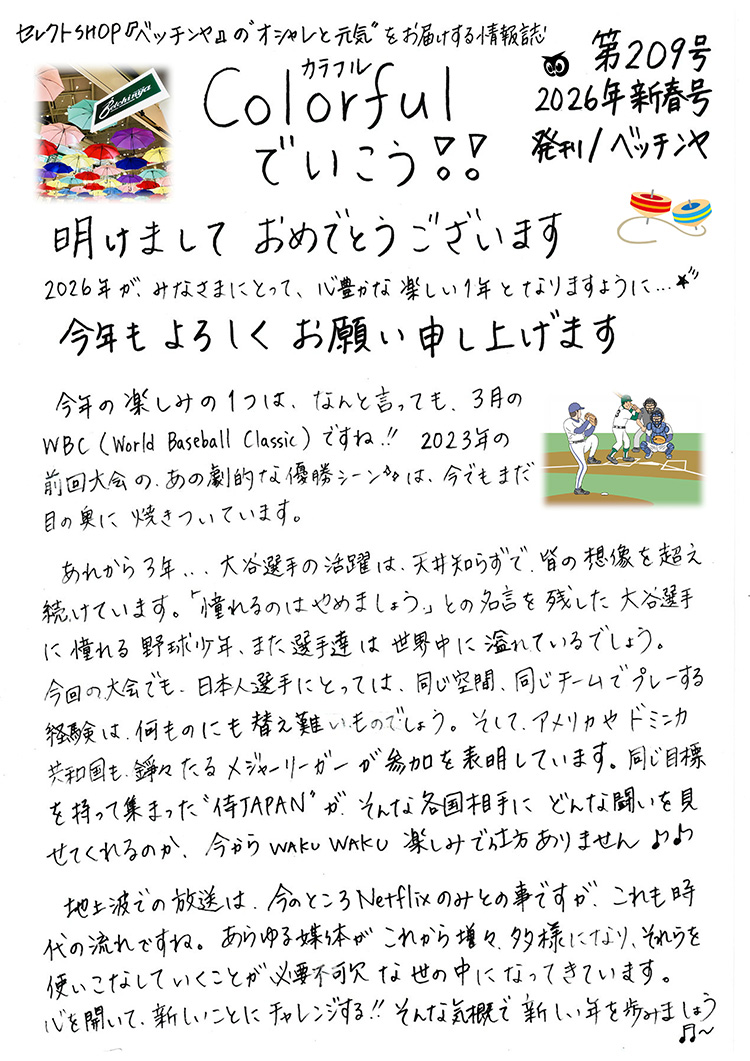 セレクトSHOP『ベッチンヤ』の“オシャレと元気”をお届けする情報誌
カラフル
Colorful
でいこう!!
第209号
2026年新春号
発刊/ベッチンヤ
明けまして おめでとうございます
2026年が、みなさまにとって、心豊かな楽しい1年となりますように…
今年もよろしく お願い申し上げます
今年の楽しみの1つは、なんと言っても、3月の
WBC(World Baseball Classic)ですね!! 2023年の
前回大会の、あの劇的な優勝シーンは、今でもまだ
目の奥に焼きついています。
あれから3年、、、大谷選手の活躍は、天井知らずで、皆の想像を超え
続けています。「憧れるのはやめましょう。」との名言を残した大谷選手
に憧れる野球少年、また選手達は世界中に溢れているでしょう。
今回の大会でも、日本人選手にとっては、同じ空間、同じチームでプレーする
経験は、何ものにも替え難いものでしょう。そして、アメリカやドミニカ
共和国も、錚々たるメジャーリーガーが参加を表明しています。同じ目標
を持って集まった“侍JAPAN”が、そんな各国相手にどんな闘いを見
せてくれるのか、今からWAKU WAKU 楽しみで仕方ありません♪♪
地上波での放送は、今のところNetflixのみとの事ですが、これも時
代の流れですね。あらゆる媒体がこれから増々、多様になり、それらを
使いこなしていくことが必要不可欠な世の中になってきています。
心を開いて、新しいことにチャレンジする!! そんな気概で新しい年を歩みましょう
♫〜